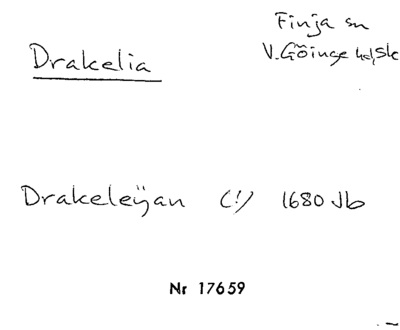 Drakelia
Finja sn
V. Göinge hd, Sk
Drakeleÿan (!) 1680 Jb
Nr 17659